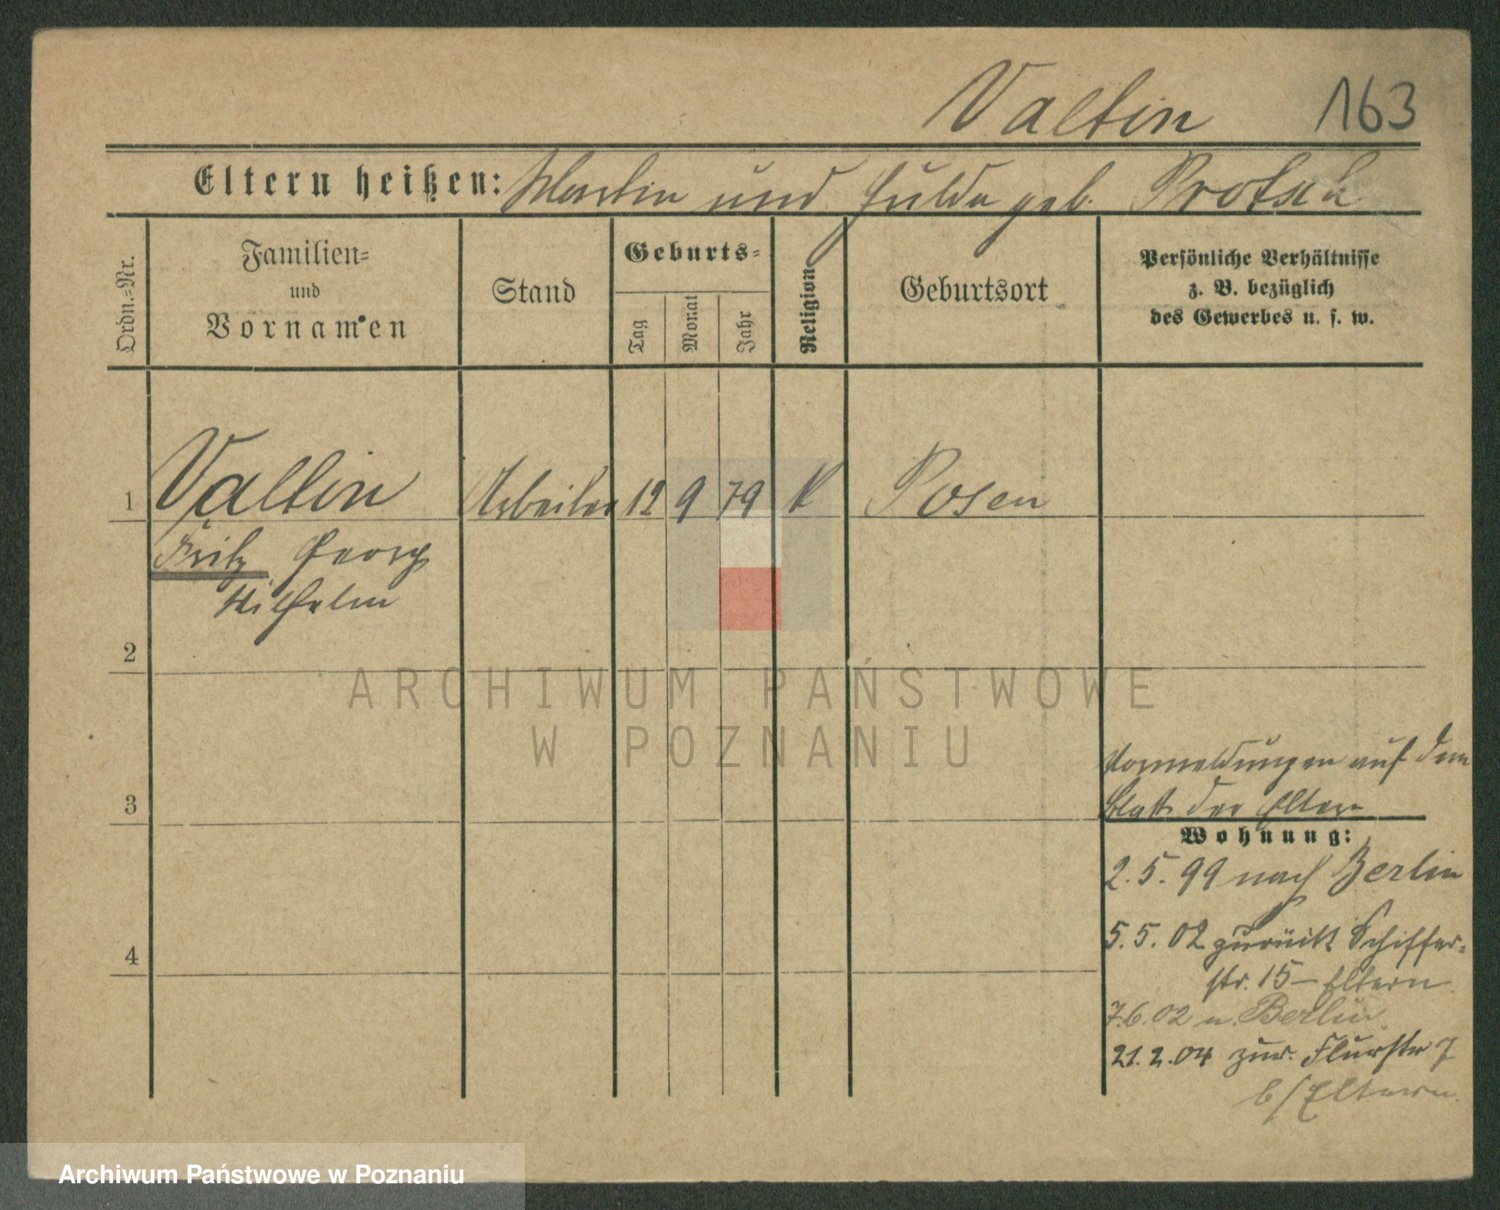 Valtin 163
Eltern heißen: Martin und Hulda geb. Protsch
Ordn.-Nr.
Familien-
und
Vornamen
Stand
Geburts-
Tag
Monat
Jahr
Religion
Geburtsort
Persönliche Verhältnisse
z. B. bezüglich
des Gewerbes u. s. w.
1 Valtin Arbeiter 12 9 79 K Posen
Fritz Georg
Wilhelm
2
ARCHIWUM PAŃSTWOWE
W POZNANIU
3
Vormeldungen auf dem
Blatt der Eltern
Wohnung:
2.5.99 nach Berlin
4
5.5.02 zurück Schiffer-
str. 15 – Eltern.
7.6.02 n. Berlin.
21.2.04 zur. Flurstr 7
b/Eltern.
Archiwum Państwowe w Poznaniu